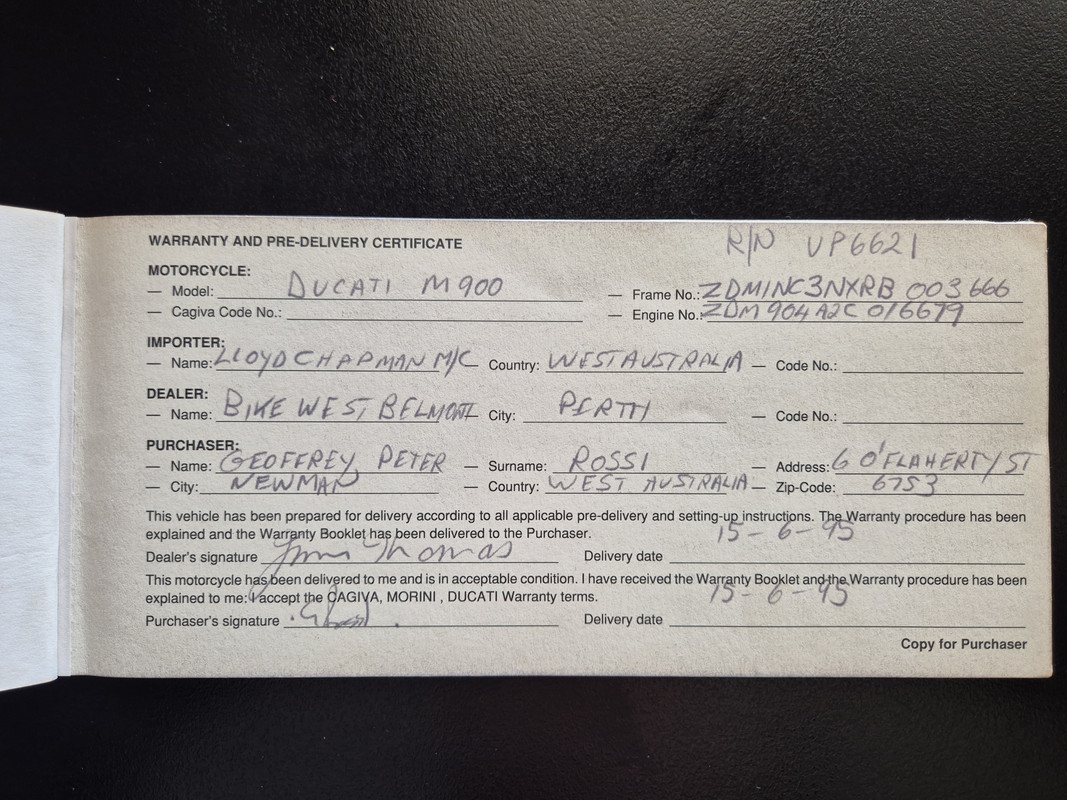 WARRANTY AND PRE-DELIVERY CERTIFICATE R/N VP6621
MOTORCYCLE:
— Model: DUCATI M900 — Frame No.: ZDM1NC3NXRB 003666
— Cagiva Code No.: — Engine No.: ZDM904A2C 016679
IMPORTER:
— Name: LLOYD CHAPMAN M/C Country: WEST AUSTRALIA — Code No.:
DEALER:
— Name: BIKE WEST BELMONT — City: PERTH — Code No.:
PURCHASER:
— Name: GEOFFREY PETER — Surname: ROSSI — Address: 6 O'FLAHERTY ST
— City: NEWMAN — Country: WEST AUSTRALIA — Zip-Code: 6753
This vehicle has been prepared for delivery according to all applicable pre-delivery and setting-up instructions. The Warranty procedure has been
explained and the Warranty Booklet has been delivered to the Purchaser. 15-6-95
Dealer's signature Thomas Delivery date
This motorcycle has been delivered to me and is in acceptable condition. I have received the Warranty Booklet and the Warranty procedure has been
explained to me: I accept the CAGIVA, MORINI , DUCATI Warranty terms. 15-6-95
Purchaser's signature Delivery date
Copy for Purchaser